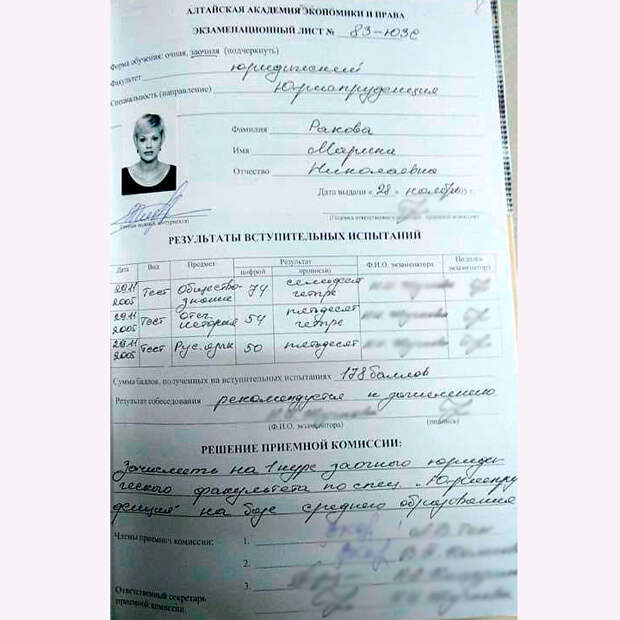 АЛТАЙСКАЯ АКАДЕМИЯ ЭКОНОМИКИ И ПРАВА
ЭКЗАМЕНАЦИОННЫЙ ЛИСТ № 83-ЮЗС
Форма обучения: очная, заочная (подчеркнуть)
Факультет юридический
Специальность (направление) Юриспруденция
Фамилия Ракова
Имя Марина
Отчество Николаевна
Дата выдачи «28» ноября
РЕЗУЛЬТАТЫ ВСТУПИТЕЛЬНЫХ ИСПЫТАНИЙ
Дата Вид Предмет Результат Ф.И.О. экзаменатора Подпись экзаменатора
цифрой прописью
29.11 2005 Тест Общество-знание 74 семьдесят четыре
29.11 2005 Тест Отеч. история 54 пятьдесят четыре
29.11 2005 Тест Рус. язык 50 пятьдесят
Сумма баллов, полученных на вступительных испытаниях 178 баллов
Результат собеседования рекомендуется к зачислению
(Ф.И.О. экзаменатора) (подпись)
РЕШЕНИЕ ПРИЕМНОЙ КОМИССИИ:
Зачислить на 1 курс заочного юриди-
ческого факультета по спец. „Юриспру-
денция" на базе среднего образования
Члены приемной комиссии: 1.
2.
3.
Ответственный секретарь
приемной комиссии